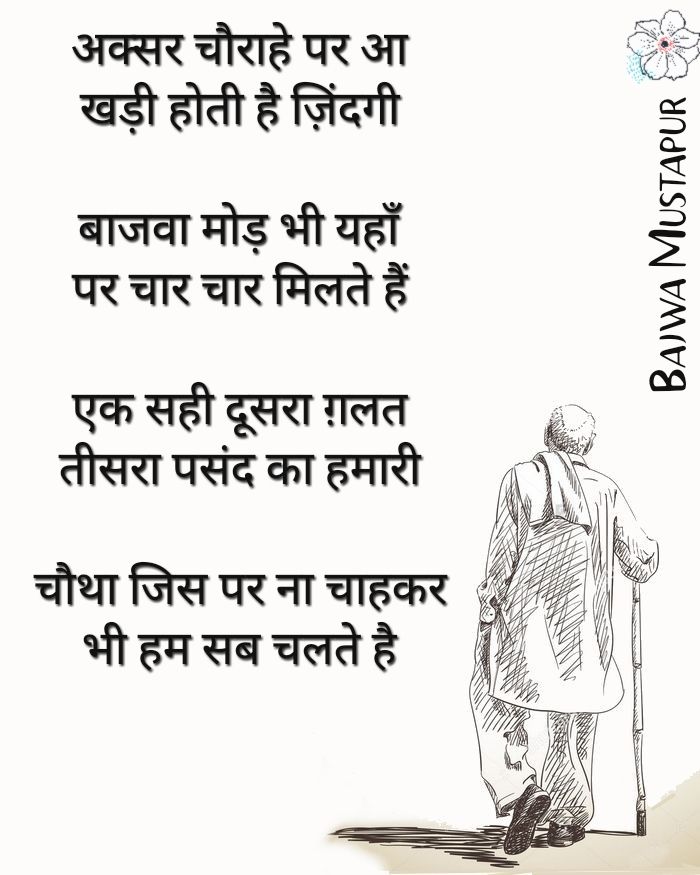 अक्सर चौराहे पर आ
खड़ी होती है ज़िंदगी
बाजवा मोड़ भी यहाँ
पर चार चार मिलते हैं
एक सही दूसरा ग़लत
तीसरा पसंद का हमारी
चौथा जिस पर ना चाहकर
भी हम सब चलते है
BAJWA MUSTAPUR